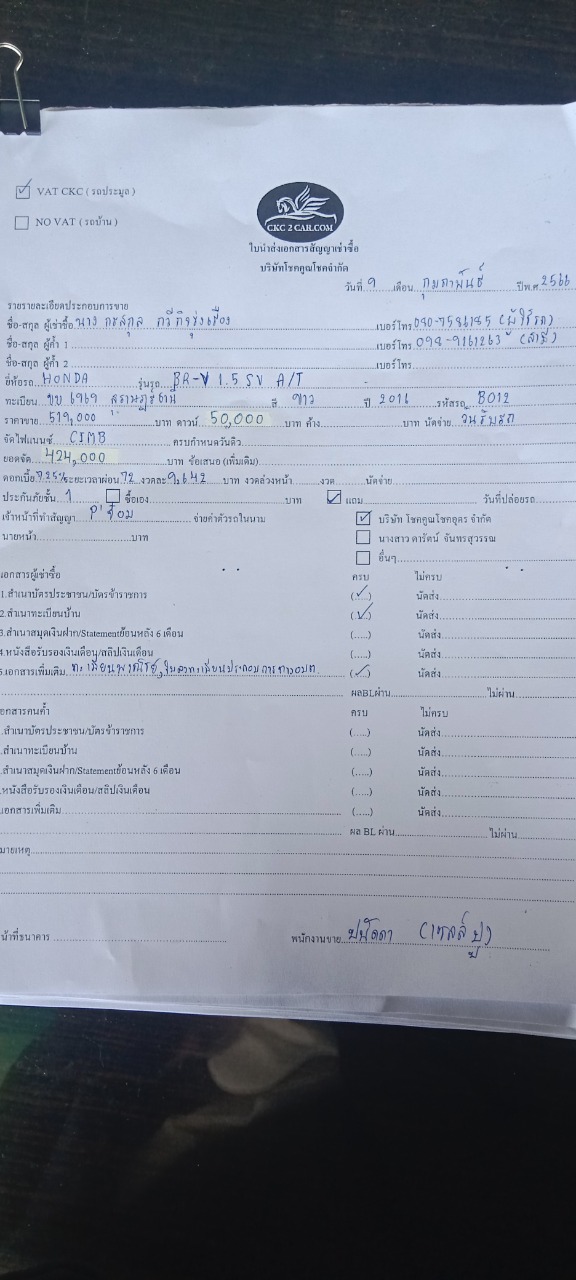 ☑ VAT CKC ( รถประมูล )
☐ NO VAT ( รถบ้าน )
CKC 2 CAR.COM
ใบนำส่งเอกสารสัญญาเช่าซื้อ
บริษัทโชคคูณโชคจำกัด
วันที่ 9 เดือน กุมภาพันธ์ ปีพ.ศ 2566
รายรายละเอียดประกอบการขาย
ชื่อ-สกุล ผู้เช่าซื้อ นาง เบอร์โทร (ผู้ใช้รถ)
ชื่อ-สกุล ผู้ค้ำ 1 เบอร์โทร (สามี)
ชื่อ-สกุล ผู้ค้ำ 2 เบอร์โทร
ยี่ห้อรถ HONDA รุ่นรถ BR-V 1.5 SV A/T
ทะเบียน 6969 สุราษฎร์ธานี สี ขาว ปี 2016 รหัสรถ B012
ราคาขาย 519,000 บาท ดาวน์ 50,000 บาท ค้าง บาท นัดจ่าย วันรับรถ
จัดไฟแนนซ์ CIMB ครบกำหนดวันดิว
ยอดจัด 424,000 บาท ข้อเสนอ (เพิ่มเติม)
ดอกเบี้ย ระยะเวลาผ่อน 72 งวดละ 9,642 บาท งวดล่วงหน้า งวด นัดจ่าย
ประกันภัยชั้น 1 ☐ ซื้อเอง บาท ☑ แถม วันที่ปล่อยรถ
เจ้าหน้าที่ทำสัญญา จ่ายค่าตัวรถในนาม ☑ บริษัท โชคคูณโชคอุดร จำกัด
นายหน้า บาท ☐ นางสาว ดารัตน์ จันทรสุวรรณ
☐ อื่นๆ
เอกสารผู้เช่าซื้อ ครบ ไม่ครบ
1.สำเนาบัตรประชาชน/บัตรข้าราชการ (✓) นัดส่ง
2.สำเนาทะเบียนบ้าน (✓) นัดส่ง
3.สำเนาสมุดเงินฝาก/Statementย้อนหลัง 6 เดือน (.....) นัดส่ง
4.หนังสือรับรองเงินเดือน/สลิปเงินเดือน (.....) นัดส่ง
5.เอกสารเพิ่มเติม ทะเบียนพาณิชย์, (✓) นัดส่ง
ผลBLผ่าน ไม่ผ่าน
เอกสารคนค้ำ ครบ ไม่ครบ
.สำเนาบัตรประชาชน/บัตรข้าราชการ (.....) นัดส่ง
.สำเนาทะเบียนบ้าน (.....) นัดส่ง
.สำเนาสมุดเงินฝาก/Statementย้อนหลัง 6 เดือน (.....) นัดส่ง
.หนังสือรับรองเงินเดือน/สลิปเงินเดือน (.....) นัดส่ง
.เอกสารเพิ่มเติม (.....) นัดส่ง
ผล BL ผ่าน ไม่ผ่าน
มายเหตุ
น้าที่ธนาคาร พนักงานขาย ปนัดดา (เซลล์ปู)